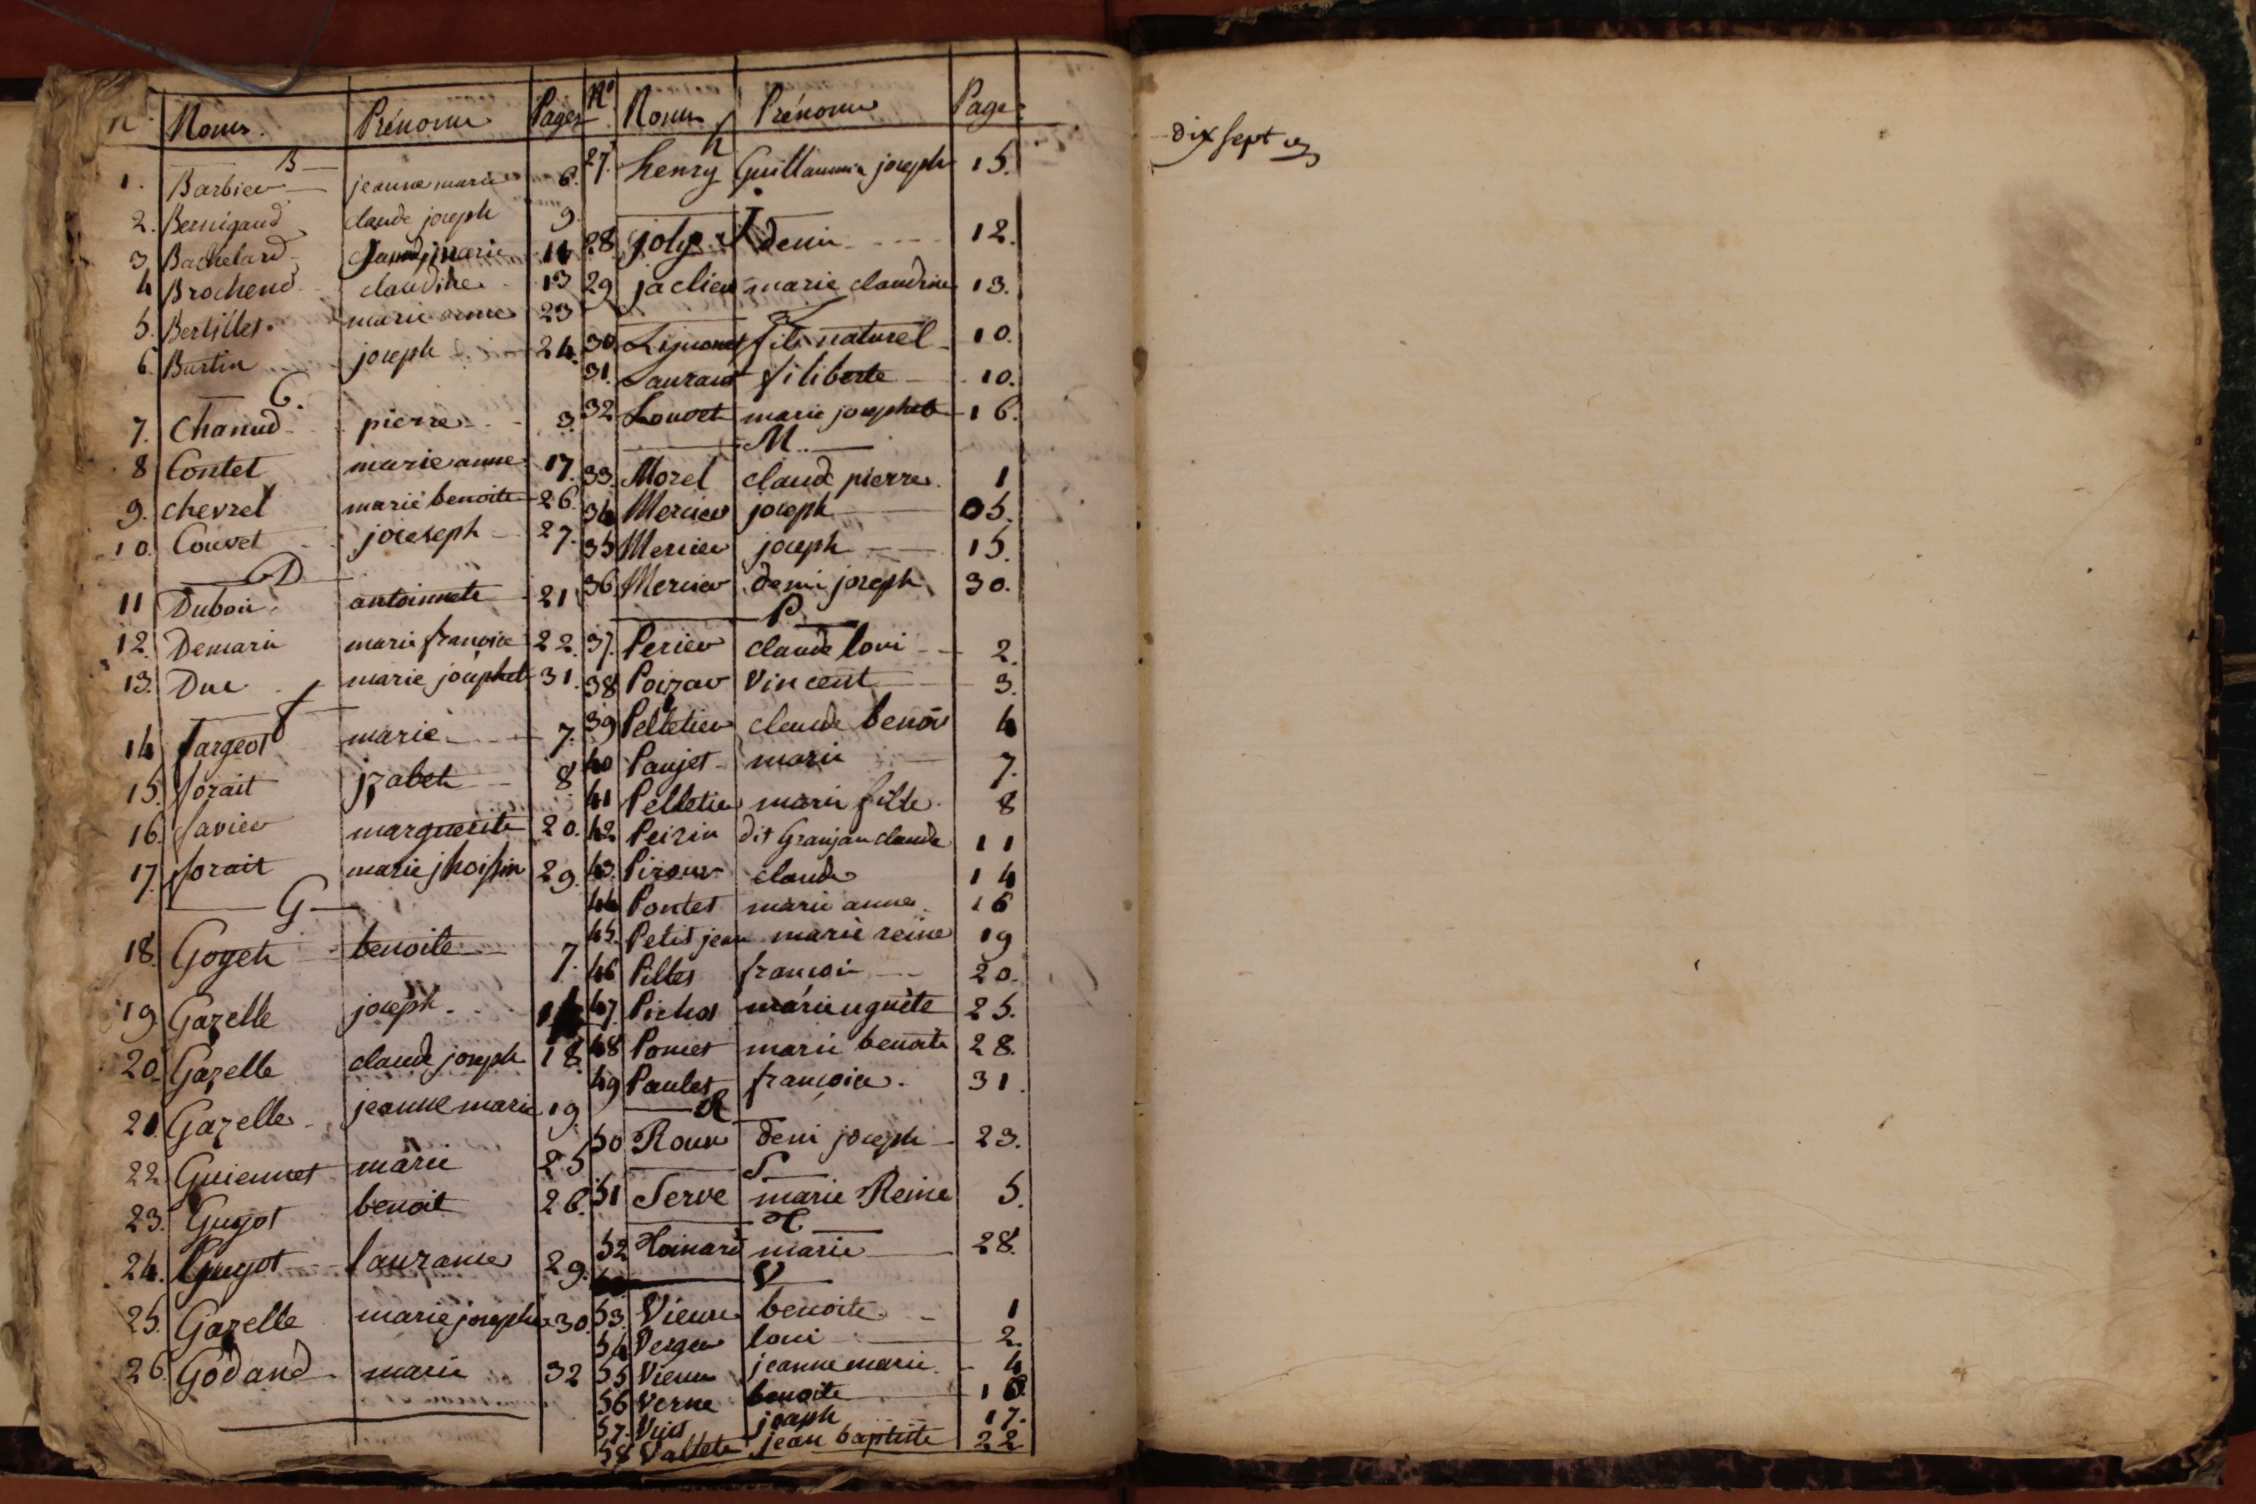 N° Noms. Prénoms Pages
B
1. Barbier jeanne marie 6.
2. Bernigaud claude joseph 9
3 Bachelard marie 11
4 Brochend claudine 13
5. Bertilles marie anne 23
6. Burtin joseph 24.
C.
7. Chanud pierre 3.
8 Contet marie anne 17.
9. chevret marie benoite 26.
10. Couvet joceseph 27.
D
11 Duboi antoinnete 21
12. Demari marie francoise 22.
13. Duc marie josephet 31.
f
14 fargeot marie 7.
15. forait jzabet 8
16. favier marguerite 20.
17. forait marie 29.
G
18. Goyet benoite 7.
19 Gazelle joseph
20. Gazelle claude joseph 18.
21. Gazelle jeanne marie 19.
22. Guiennet marie 25
23. Guyot benoit 26.
24. Guyot lauranie 29.
25. Gazelle marie joseph 30.
26. Godand marie 32
N° Noms Prénoms Page
h
27. henry Guillaume joseph 15.
J
28 joly deni 12.
29 jaclier marie claudine 13.
30 fils naturel 10.
31. Laurant filiberte 10.
32 Louvet marie josephete 16.
M
33. Morel claude pierre 1
34 Mercier joseph 05.
35 Mercier joseph 15.
36 Mercier deni joseph 30.
P
37. Perier claude loui 2.
38 Poizav Vincent 3.
39 Pelletier claude benoi 4
40 Paujet marie 7.
41 Pelletier marie fille 8
42 Peirin dit Granjan claude 11
43. claude 14
44 Pontet marie anne 16
45. Petit jean marie reine 19
46 Pilles francoi 20.
47. Pichot marie uguète 25.
48 Pomet marie benoite 28.
49 Paulet francoise 31.
R
50 Roux deni joseph 23.
S
51 Serve marie Reine 5.
T
52 Toinard marie 28.
V
53. Vieux benoite 1
54 Verger loui 2.
55 Vieux jeanne marie 4
56 Verne benoite
57. joseph 17.
58 Vallete jean baptiste 22
dix sept